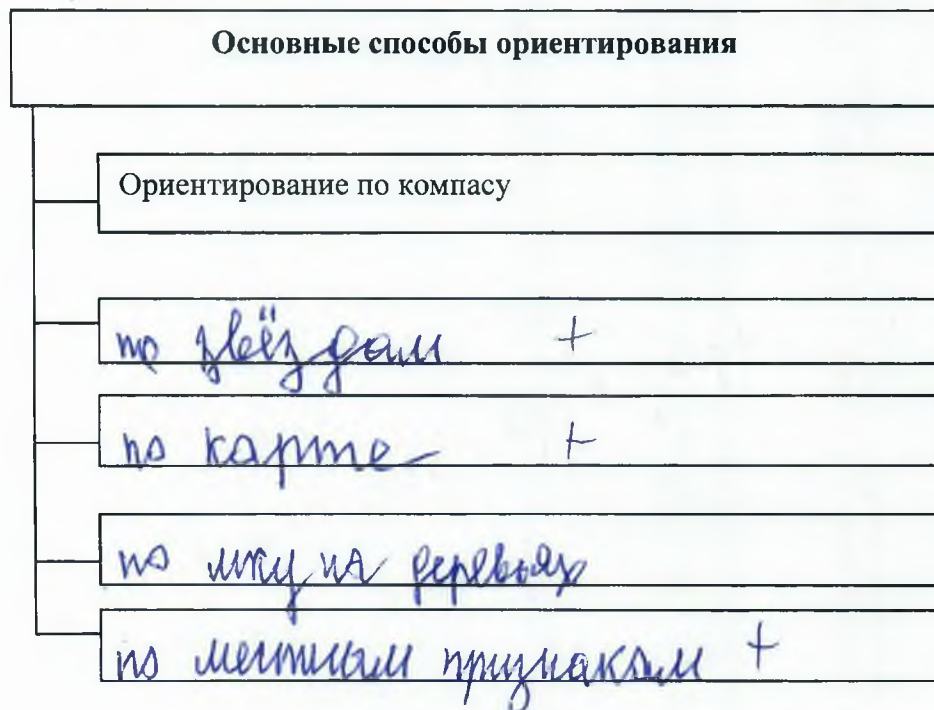 Основные способы ориентирования
Ориентирование по компасу
по звёздам +
по карте +
по мху на деревьях
по местным признакам +